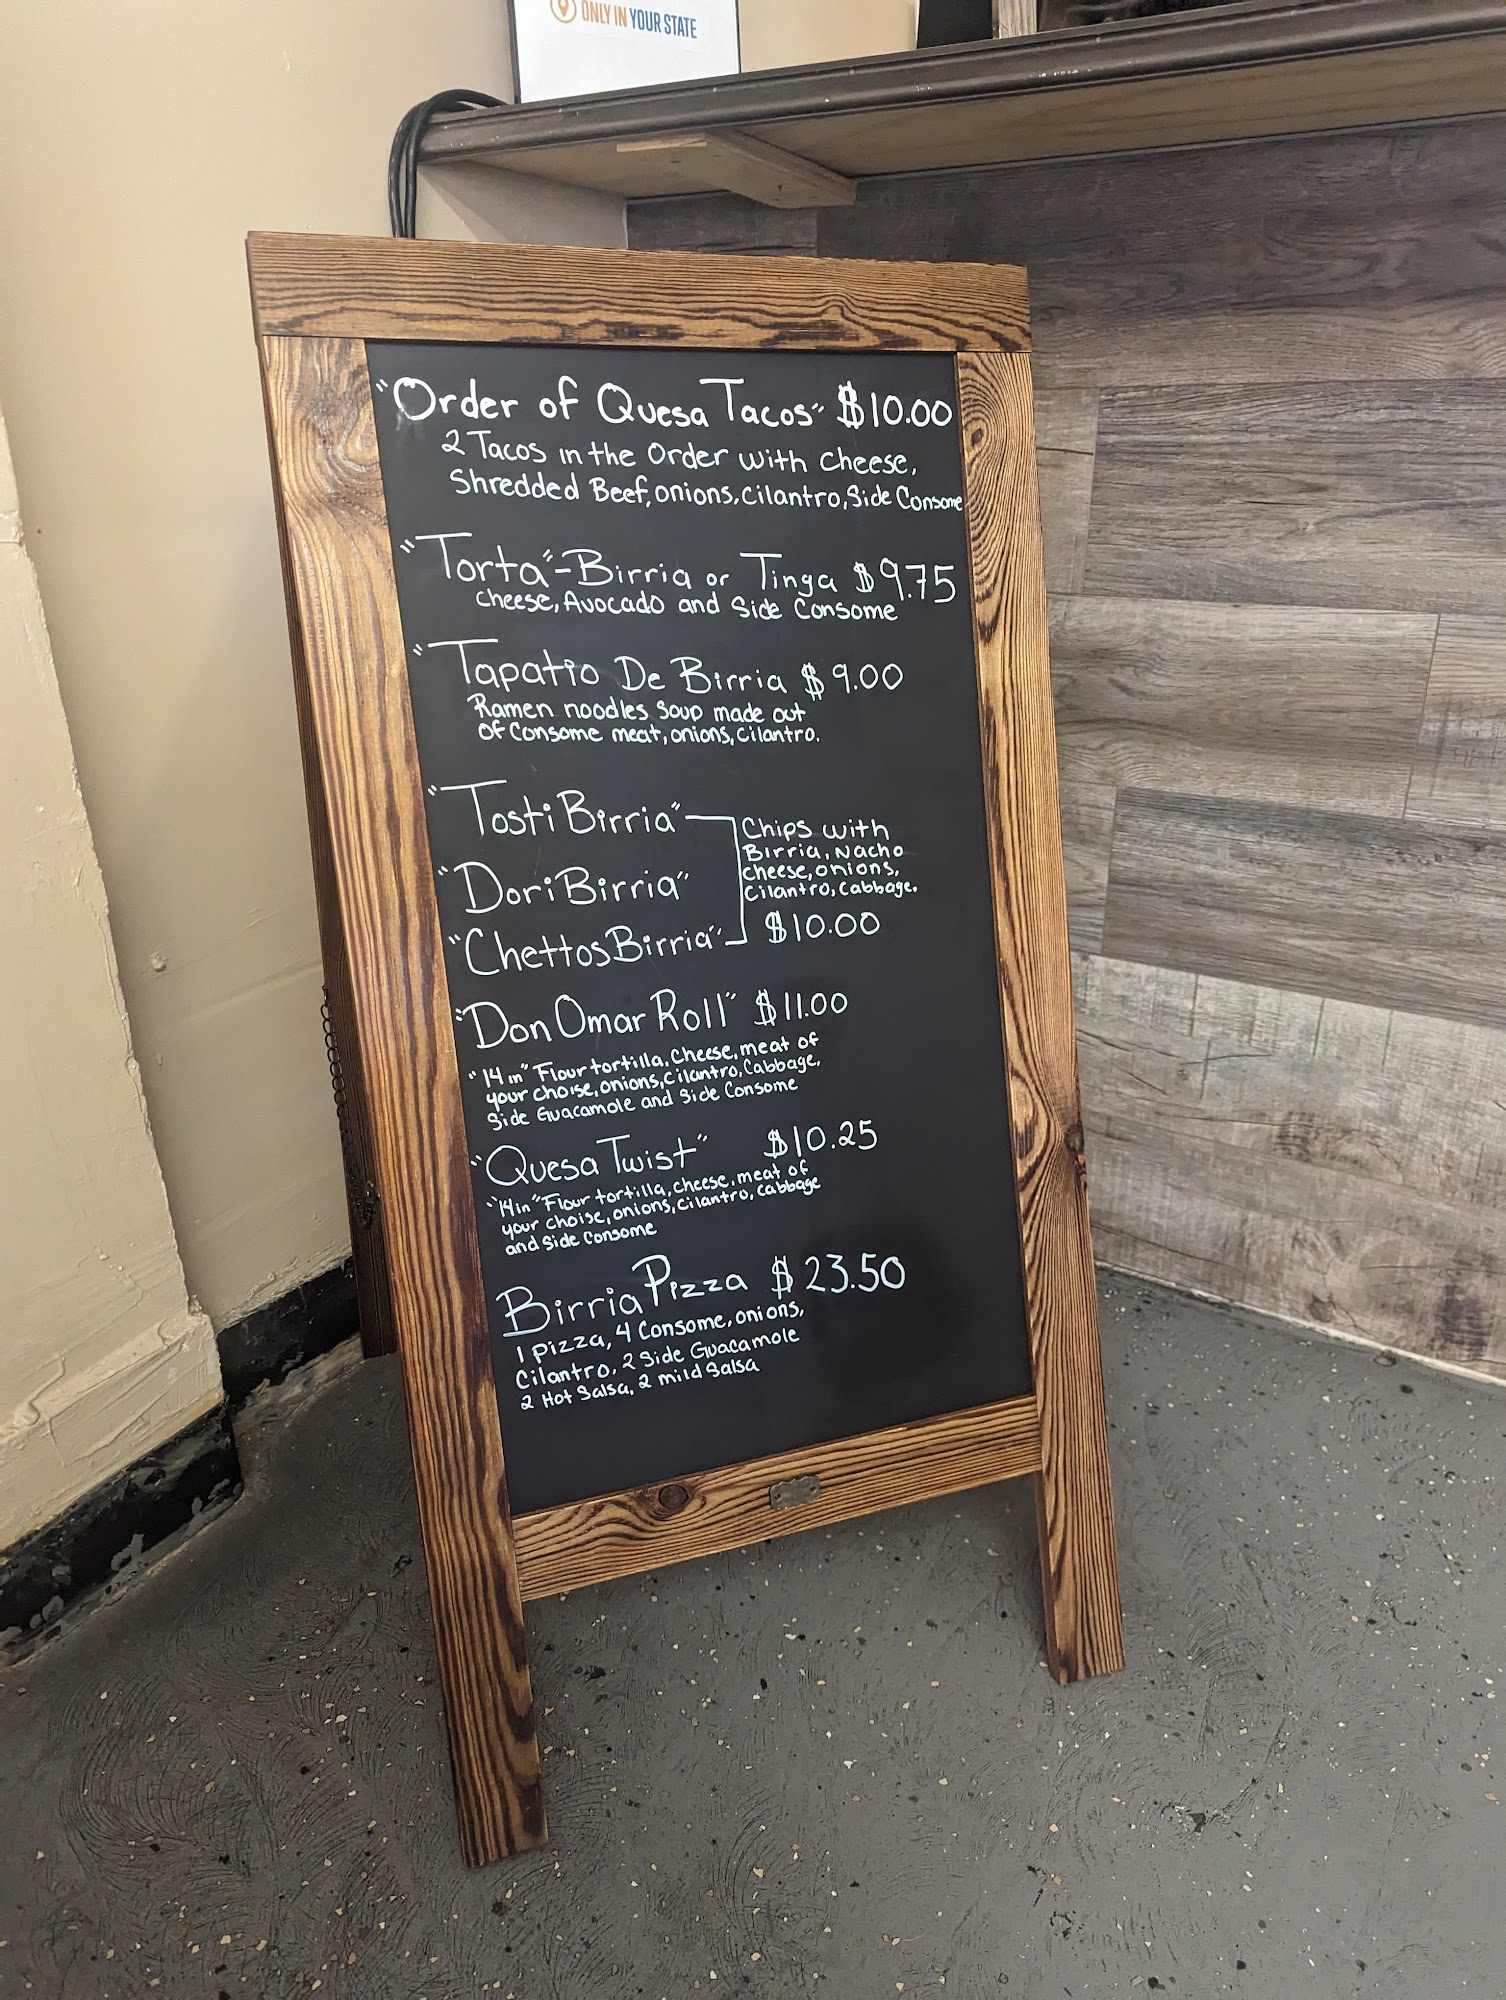 ONLY IN YOUR STATE
"Order of Quesa Tacos" $10.00
2 Tacos in the Order with Cheese,
Shredded Beef, onions, cilantro, Side Consome
"Torta" - Birria or Tinga $9.75
cheese, Avocado and Side Consome
"Tapatio De Birria $9.00
Ramen noodles Soup made out
Of Consome meat, onions, cilantro.
"Tosti Birria"
"Dori Birria"
"Chettos Birria"
Chips with
Birria, Nacho
cheese, onions,
Cilantro, cabbage.
$10.00
"Don Omar Roll" $11.00
"14 in" Flour tortilla, Cheese, meat of
your choise, onions, cilantro, Cabbage,
Side Guacamole and Side Consome
"Quesa Twist" $10.25
"14in" Flour tortilla, cheese, meat of
your choise, onions, cilantro, cabbage
and Side Consome
Birria Pizza $23.50
1 Pizza, 4 Consome, onions,
Cilantro, 2 Side Guacamole
2 Hot Salsa, 2 mild Salsa